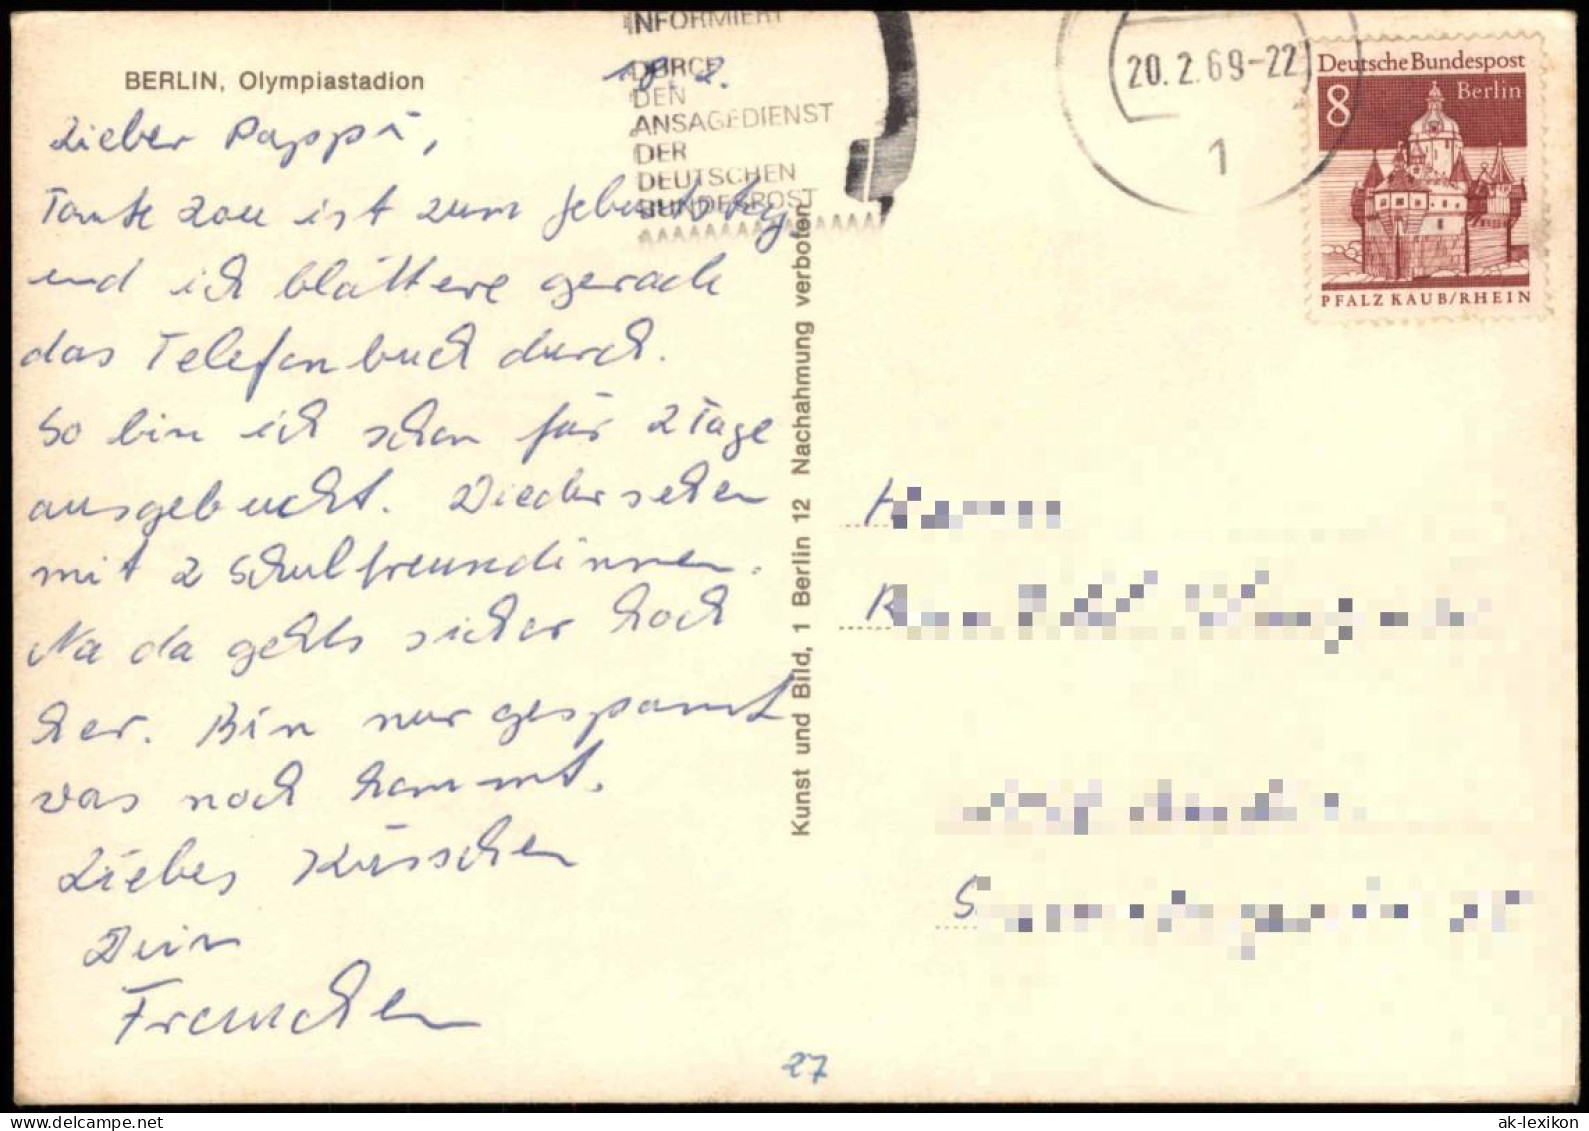 BERLIN, Olympiastadion
18. 2.
INFORMIERT
DURCH
DEN
ANSAGEDIENST
DER
DEUTSCHEN
BUNDESPOST
20.2.69-22
1
Deutsche Bundespost
8 Berlin
PFALZ KAUB/RHEIN
Lieber Pappi,
Tante Zou ist zum Geburtstag
und ich blättere gerade
das Telefonbuch durch.
So bin ich schon für 2 Tage
ausgebucht. Wiedersehen
mit 2 Schulfreundinnen.
Na da gehts sicher hoch
her. Bin nur gespannt
was noch kommt.
Liebes Küsschen
Dein
Frauchen
Kunst und Bild, 1 Berlin 12 Nachahmung verboten
27
ak-lexikon